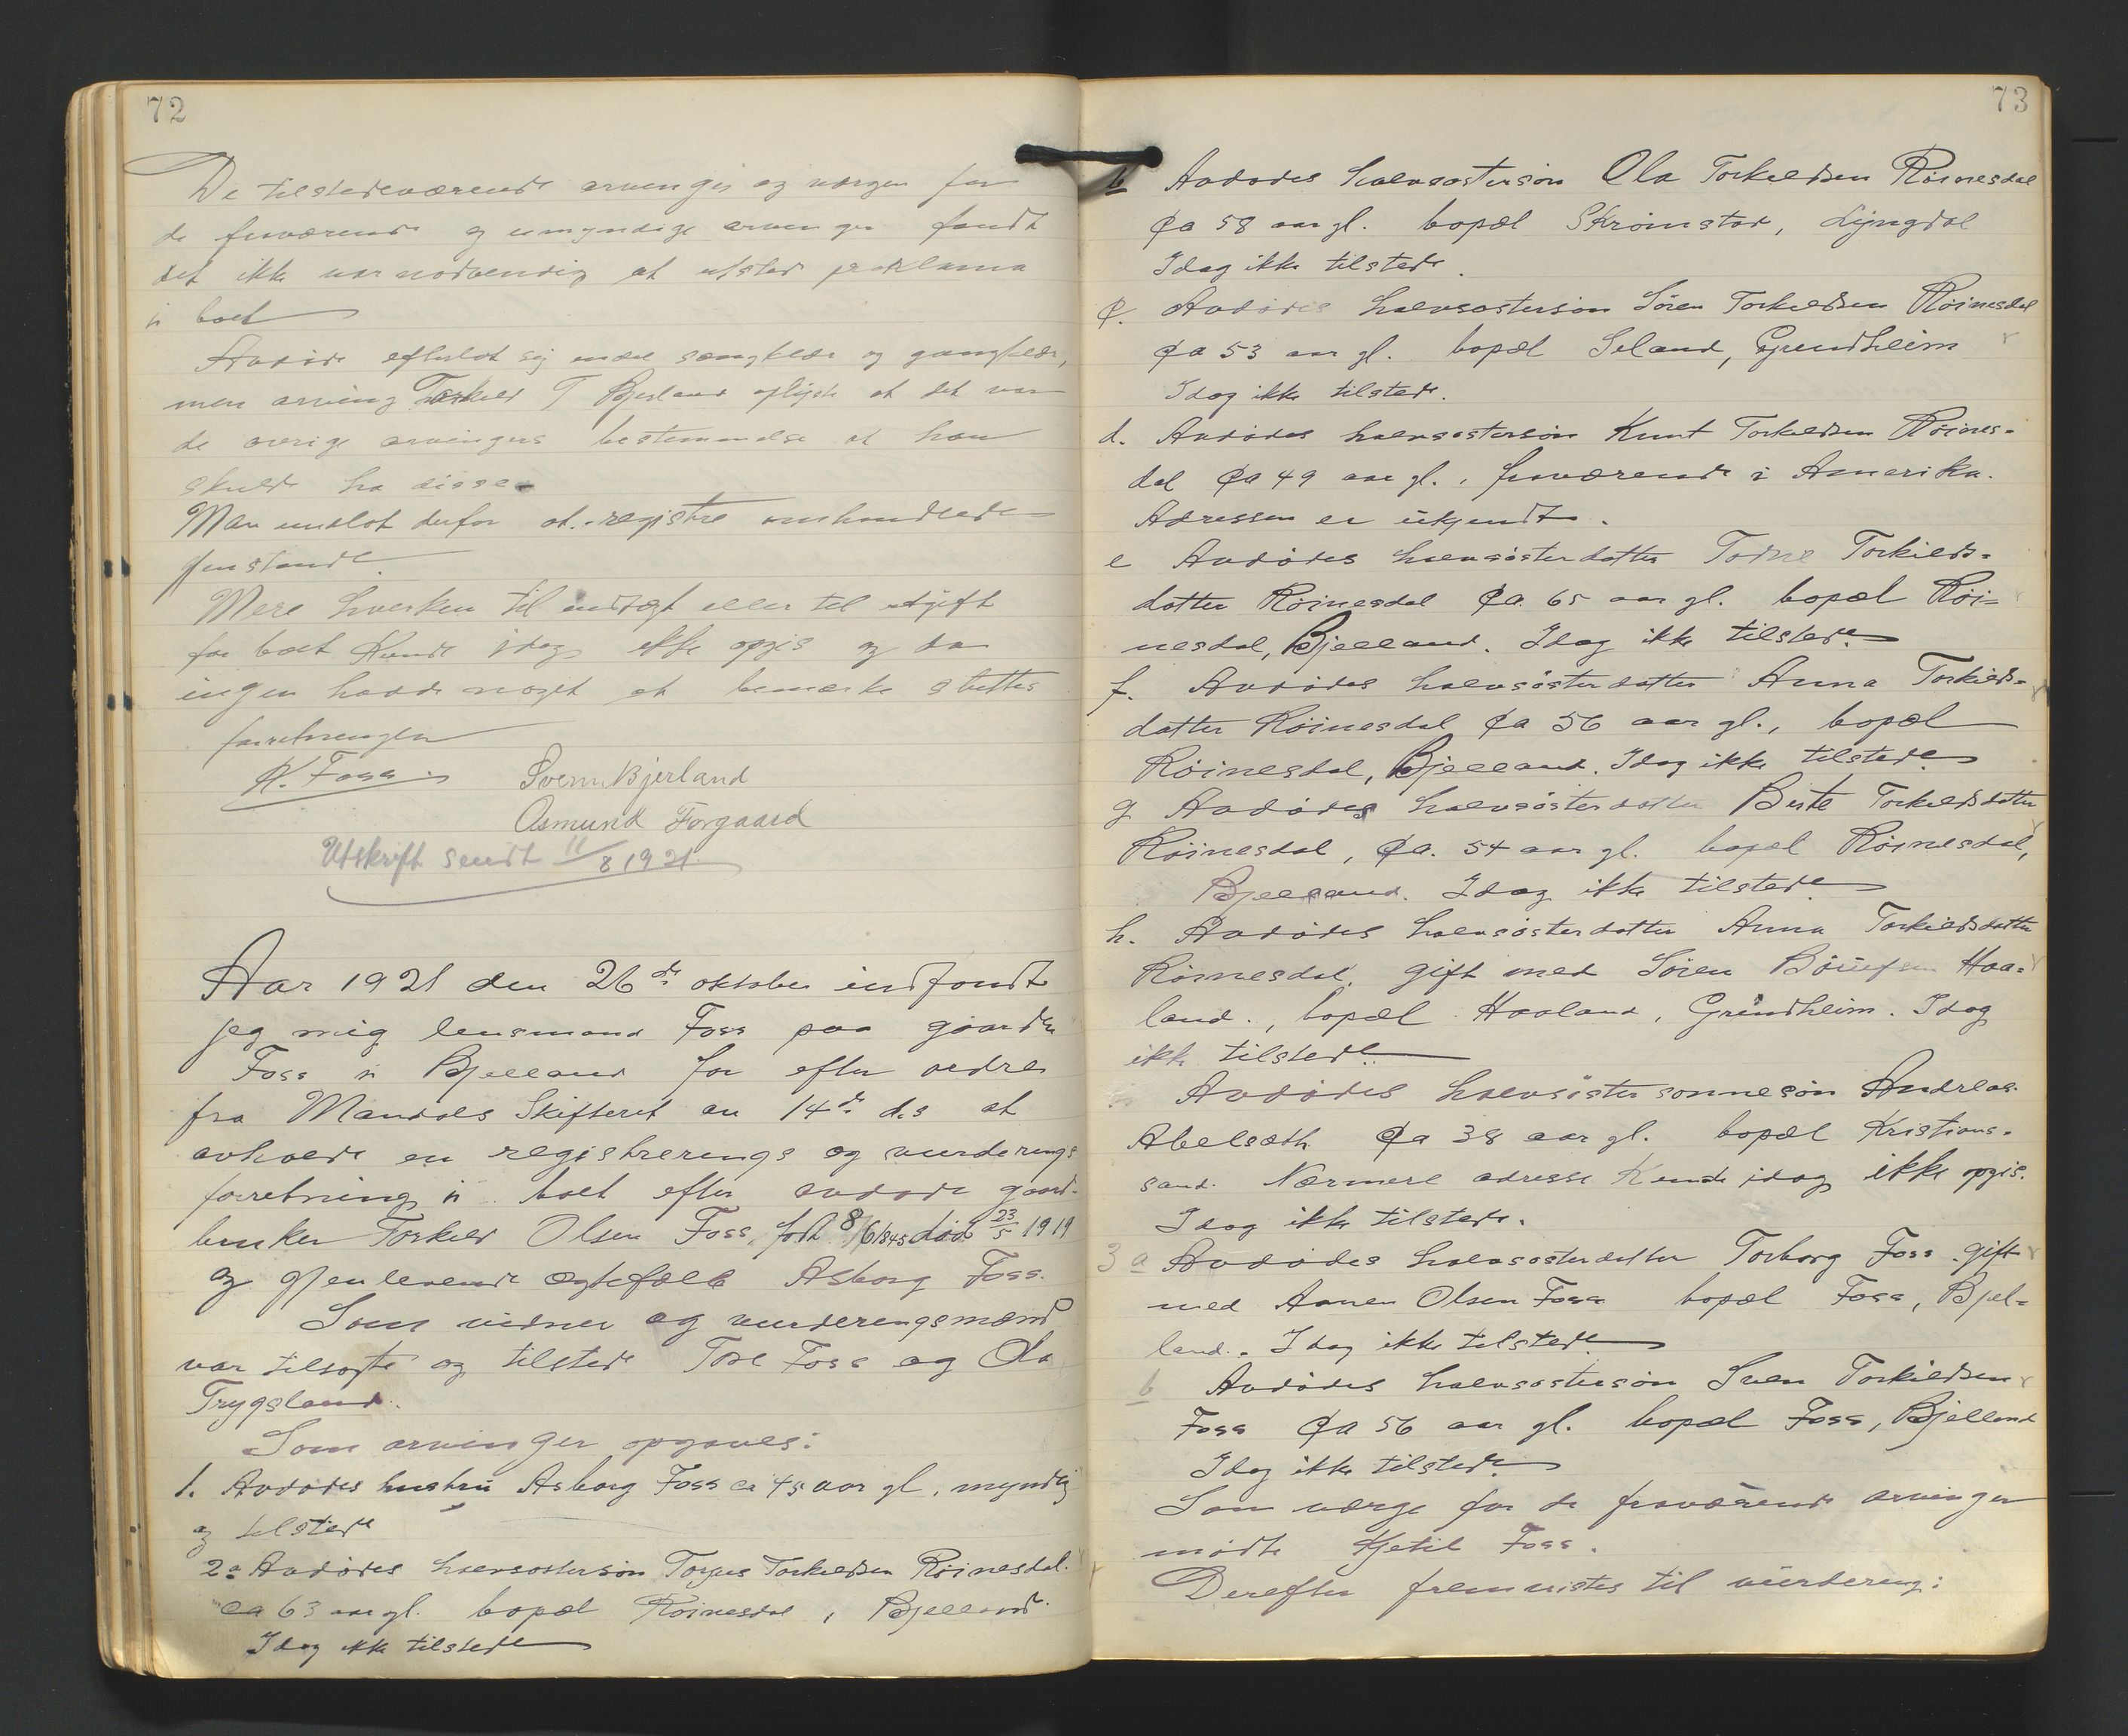 72
De tilstedeværende arvinger og vergen for
de fraværende og umyndige arvinger fandt
det ikke var nødvendig at utstede proklama
i boet
Avdøde efterlot sig endel sængklær og gangklær,
men arving Torkild T Bjerland oplyste at det var
de øvrige arvingers bestemmelse at han
skulde ha disse
Man undlot derfor at registre omhandlede
gjenstande.
Mere hverken til indtægt eller til utgift
for boet kunde idag ikke opgis og da
ingen hadde noget at bemerke sluttes
forretningen
K. Foss. Svenn Bjerland
Asmund Forgaard
Utskrift sendt 11/8 1921.
Aar 1921 den 26de oktober indfandt
jeg mig lensmand Foss paa gaarden
Foss i Bjelland for efter ordre
fra Mandals Skifteret av 14de ds at
avholde en registrerings og vurderings
forretning i boet efter avdøde gaard-
bruker Torkild Olsen Foss, født 8/6 1845 død 23/5 1919
og gjenlevende ægtefælle Asborg Foss.
Som vidner og vurderingsmænd
var tilsagte og tilstede Tore Foss og Ola
Trygsland.
Som arvinger opgaves:
1. Avdødes hustru Asborg Foss ca 45 aar gl, myndig
og tilstede
2a Avdødes halvsøstersøn Torjus Torkildsen Röinesdal.
ca 63 aar gl. bopæl Röinesdal, Bjelland.
Idag ikke tilstede
73
b Avdødes halvsøstersøn Ola Torkildsen Röinesdal
ca 58 aar gl. bopæl Skrömstad, Lyngdal
Idag ikke tilstede.
c. Avdødes halvsøstersøn Sören Torkildsen Röinesdal
ca 53 aar gl. bopæl Seland, Grindheim
Idag ikke tilstede.
d. Avdødes halvsøstersøn Knut Torkildsen Röines-
dal ca 49 aar gl., fraværende i Amerika.
Adressen er ukjendt.
e Avdødes halvsøsterdatter Torkilds-
datter Röinesdal ca. 65 aar gl. bopæl Röi-
nesdal, Bjelland. Idag ikke tilstede.
f. Avdødes halvsøsterdatter Anna Torkilds-
datter Röinesdal ca 56 aar gl., bopæl
Röinesdal, Bjelland. Idag ikke tilstede.
g Avdødes halvsøsterdatter Birte Torkildsdatter
Röinesdal, ca. 54 aar gl. bopæl Röinesdal,
Bjelland. Idag ikke tilstede.
h. Avdødes halvsøsterdatter Anna Torkildsdatter
Röinesdal, gift med Sören Haa-
land., bopæl Haaland, Grindheim. Idag
ikke tilstede.
Avdødes halvsøstersønnesøn Andreas
Abelsæth ca 38 aar gl. bopæl Kristians-
sand. Nærmere adresse kunde idag ikke opgis.
Idag ikke tilstede.
3 a Avdødes halvsøsterdatter Torborg Foss gift
med Aanen Olsen Foss bopæl Foss, Bjel-
land. Idag ikke tilstede.
b Avdødes halvsøstersøn Sven Torkildsen
Foss ca 56 aar gl. bopæl Foss, Bjelland
Idag ikke tilstede.
Som værge for de fraværende arvinger
mødte Kjetil Foss.
Derefter fremvistes til vurdering: